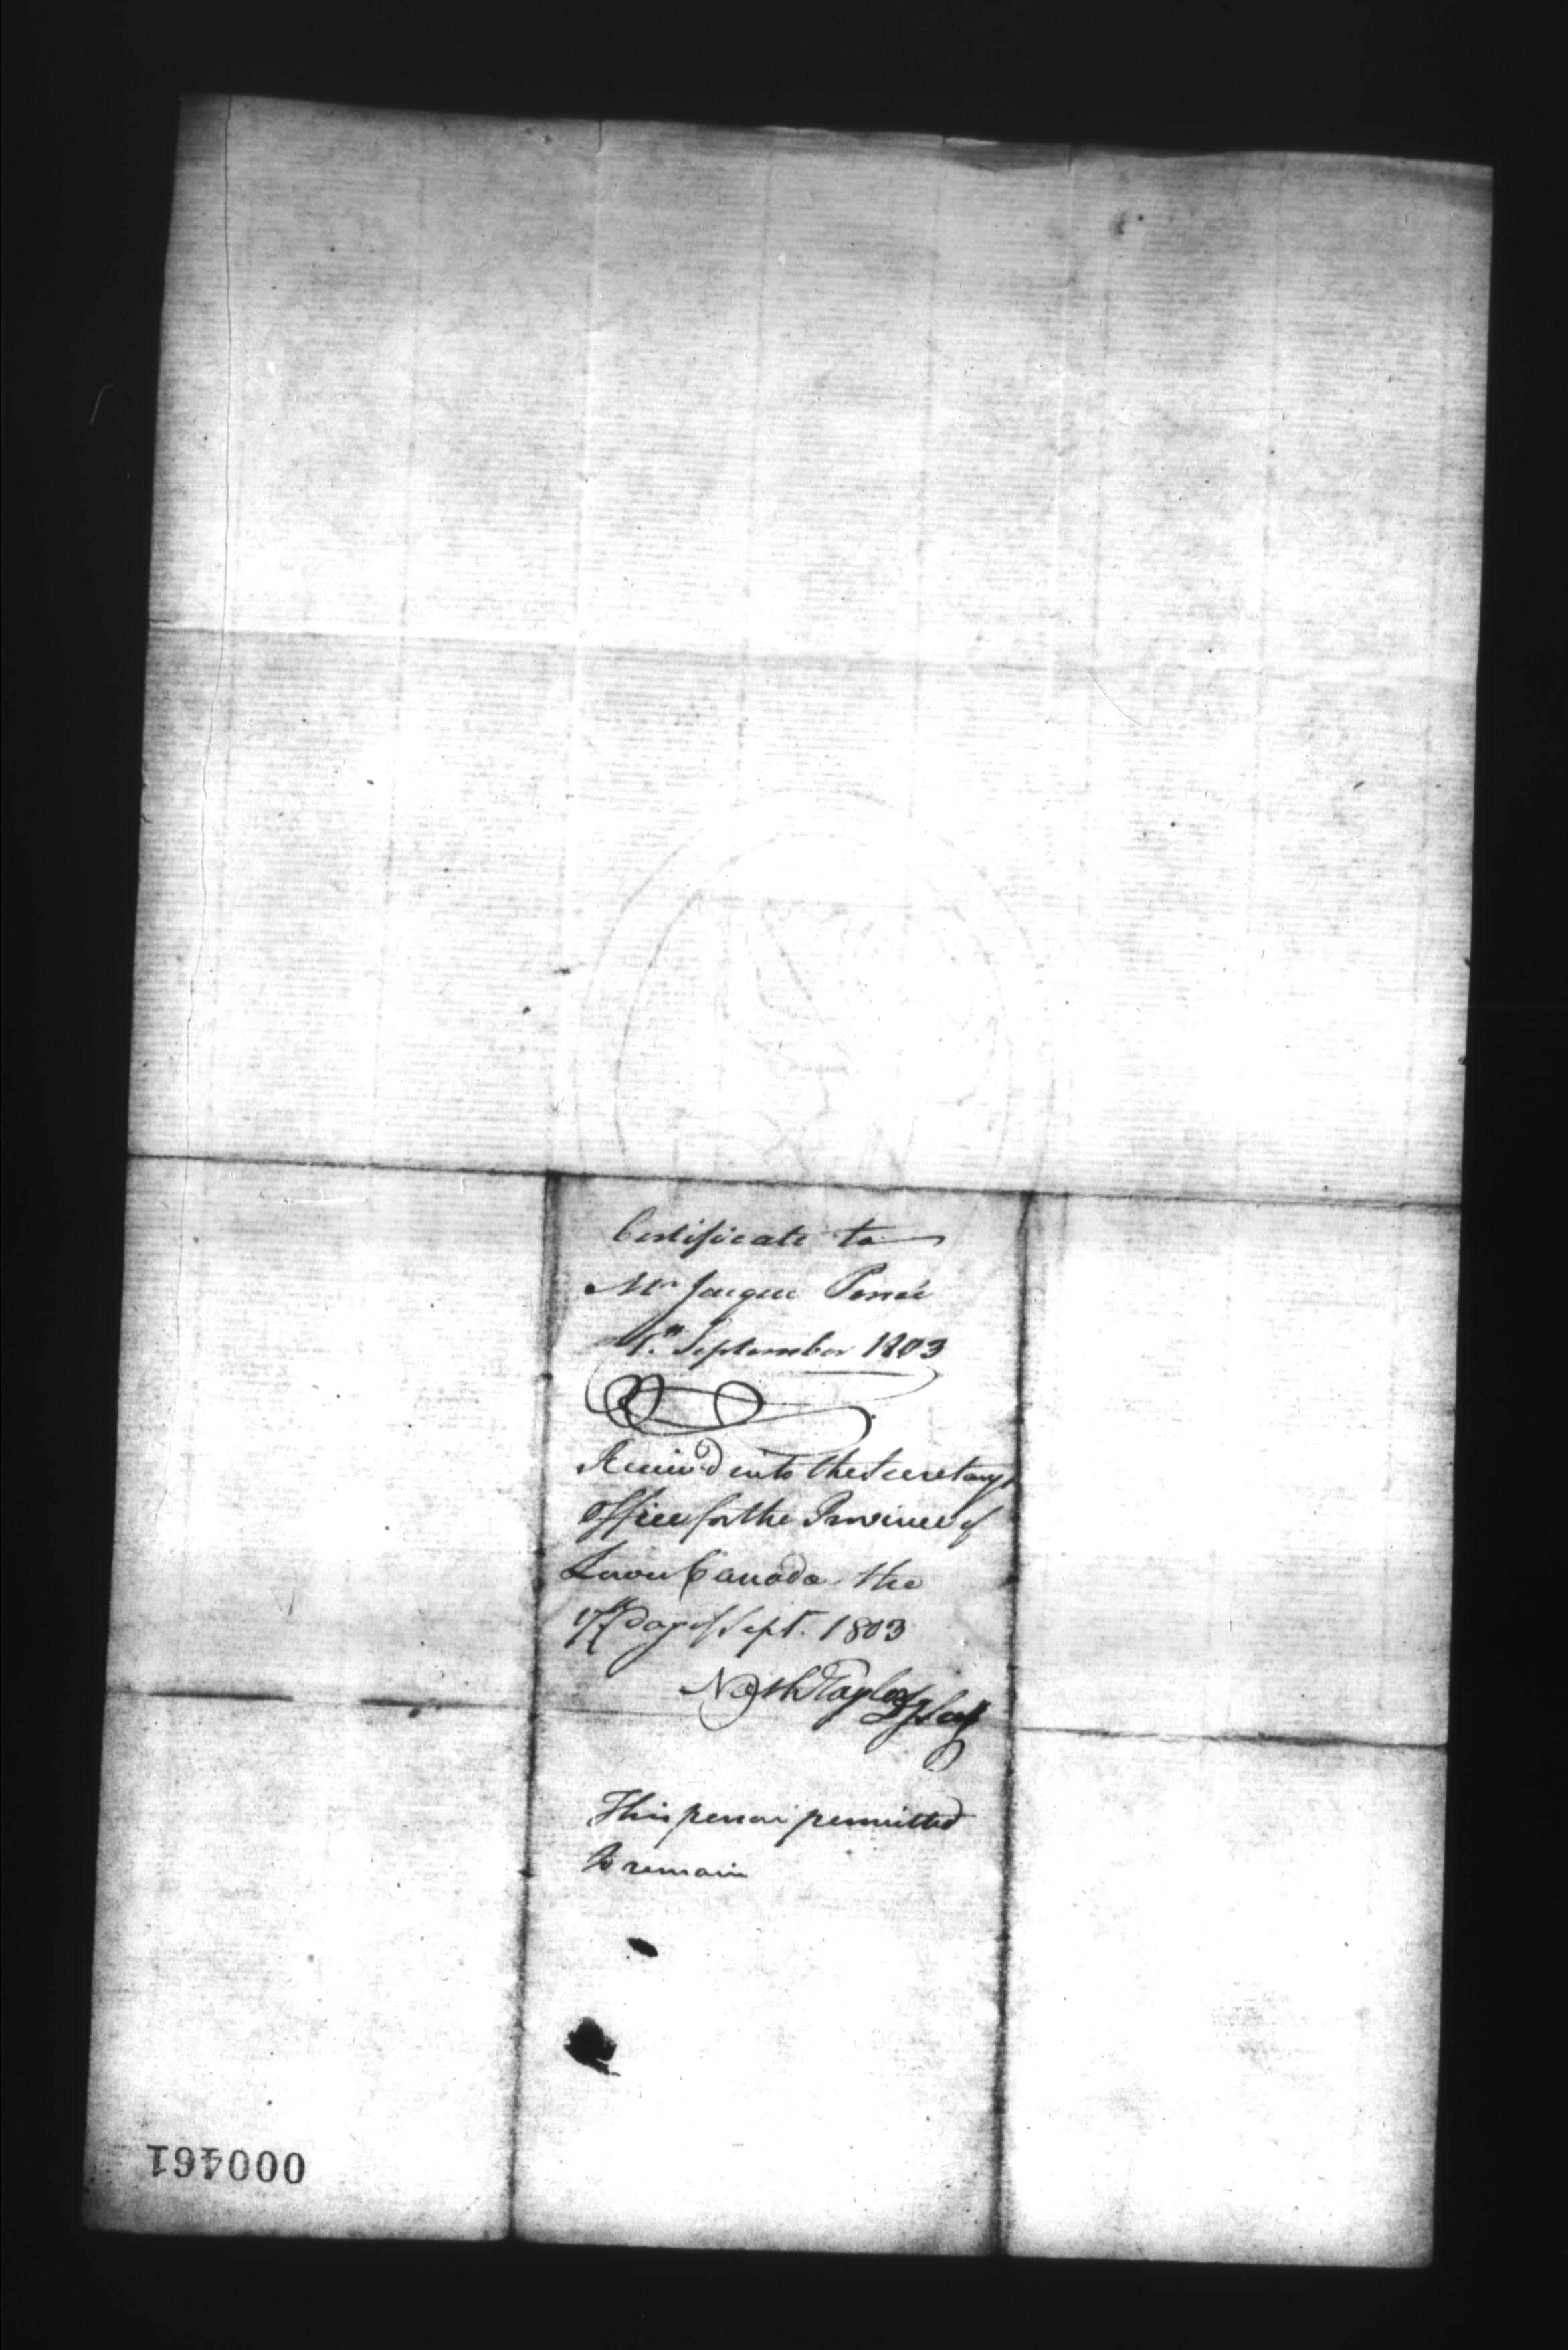 Certificate to
Mr Jacque
September 1803
Received into the Secretarys
office for the Province of
Lower Canada the
17th Day of Sept. 1803
Nath Taylor Dy Secy
This person permitted
to remain
000461